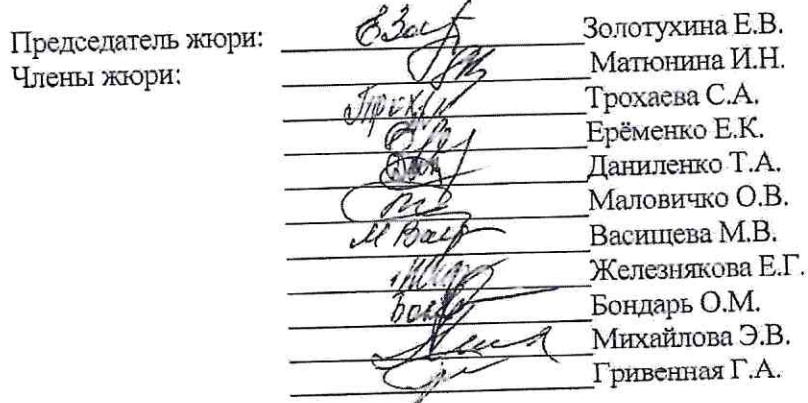 Председатель жюри: Золотухина Е.В.
Члены жюри: Матюнина И.Н.
Трохаева С.А.
Ерёменко Е.К.
Даниленко Т.А.
Маловичко О.В.
Васищева М.В.
Железнякова Е.Г.
Бондарь О.М.
Михайлова Э.В.
Гривенная Г.А.